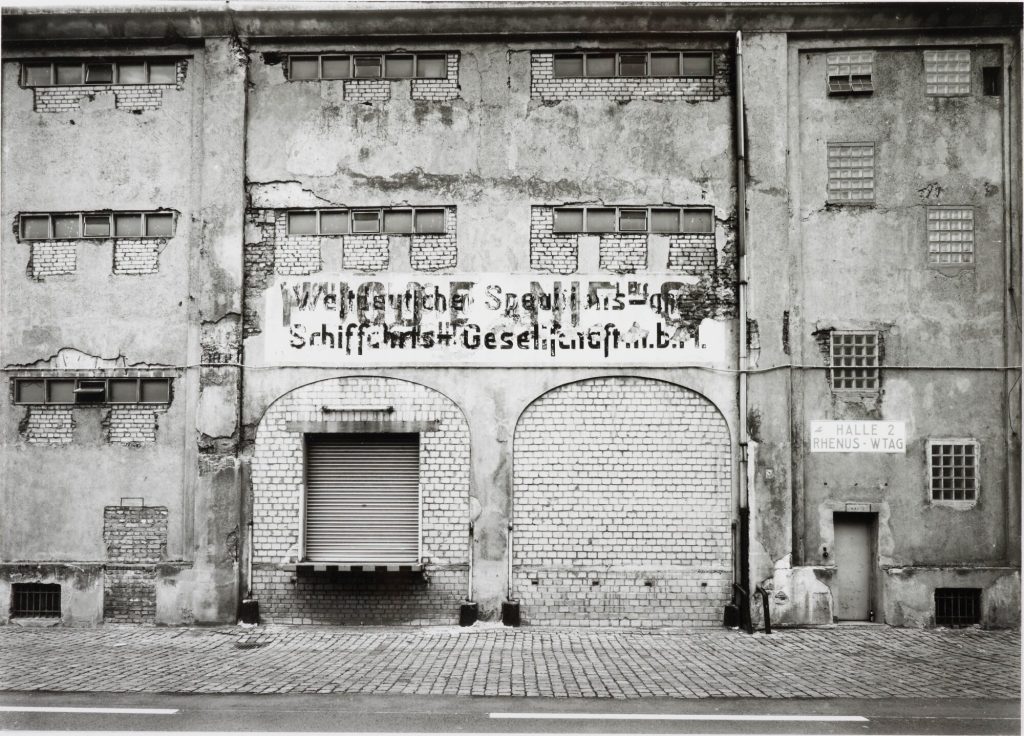 Weſtdeutſche Speditions- und
Schiffahrts- Geſellſchaft m.b.H.
HALLE 2
RHENUS · WTAG